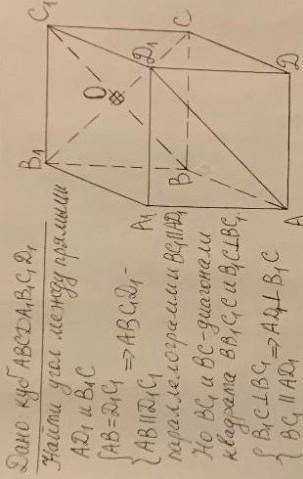 Дано куб ABCDA₁B₁C₁D₁
Найти угол между прямыми
AD₁ и B₁C
{AB = D₁C₁
{AB ∥ D₁C₁ ⇒ ABC₁D₁ -
параллелограмм и BC₁ ∥ AD₁
Но BC₁ и BC - диагонали
квадрата BB₁C₁C и B₁C ⊥ BC₁.
{B₁C ⊥ BC₁
{BC₁ ∥ AD₁ ⇒ AD₁ ⊥ B₁C
C₁
D₁
C
O
B₁
D
B
A₁
A